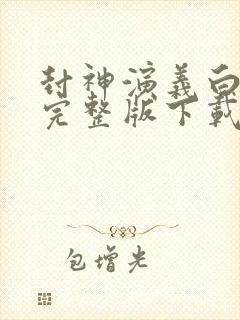 封神演義白
完整版下載
包增光